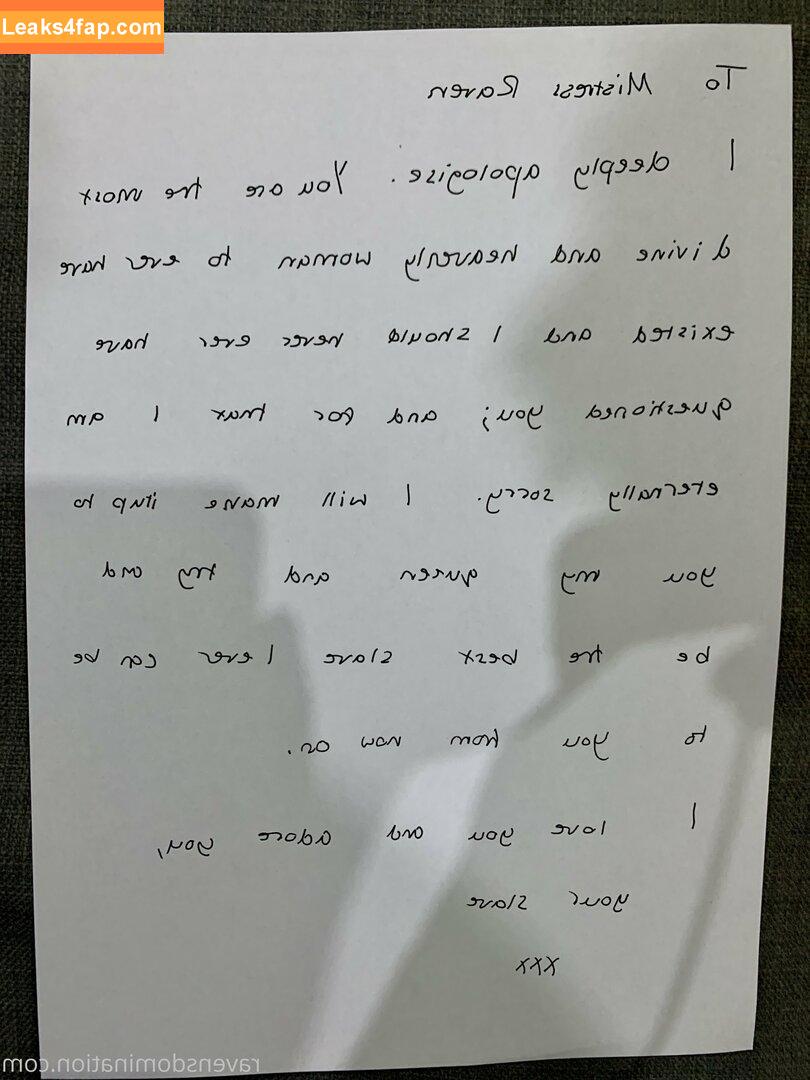 Leaks4fap.com
To Mistress Raven
I deeply apologise. You are the most
divine and heavenly woman to ever have
existed and I should never ever have
questioned you; and for that I am
eternally sorry. I will make itup to
you my queen and try and
be the best slave I ever can be
to you from now on.
I love you and adore you,
your slave
xxx
ravensdomination.com